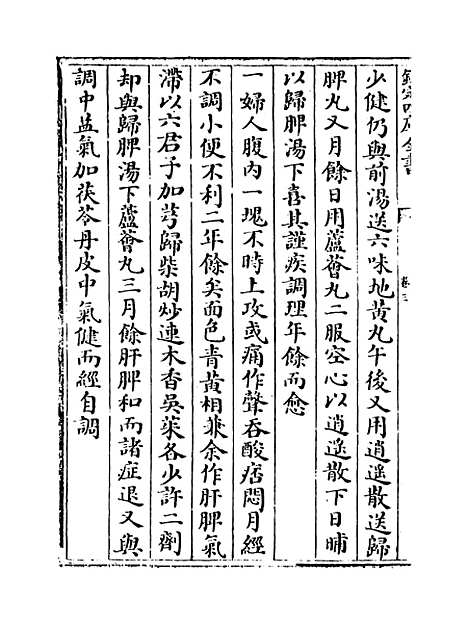 欽定四庫全書
卷三
少健仍與前湯送六味地黃丸午後又用逍遙散送歸
脾丸又月餘日用蘆薈丸二服空心以逍遙散下日晡
以歸脾湯下喜其謹疾調理年餘而愈
一婦人腹內一塊不時上攻或痛作聲吞酸痞悶月經
不調小便不利二年餘矣面色青黃相兼余作肝脾氣
滯以六君子加芎歸柴胡炒連木香吳茱各少許二劑
却與歸脾湯下蘆薈丸三月餘肝脾和而諸症退又與
調中益氣加茯苓丹皮中氣健而經自調